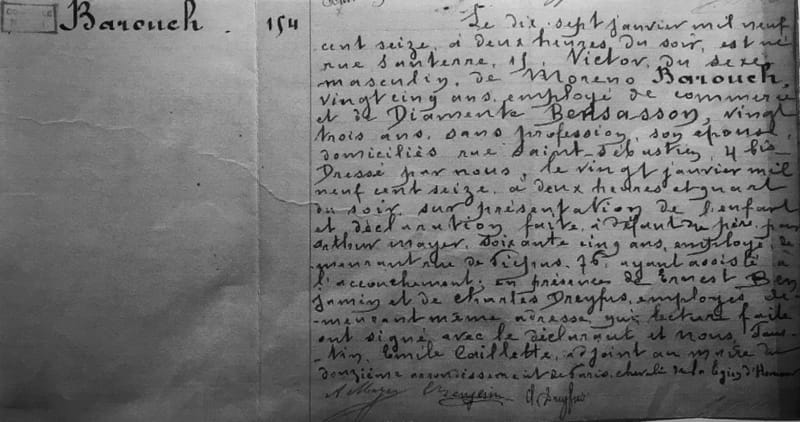 Barouch. 154
Le dix-sept janvier mil neuf
cent seize, à deux heures du soir, est né
rue Santerre, 15, Victor, du sexe
masculin, de Moreno Barouch,
vingt cinq ans, employé de commerce
et de Diamente Bensasson, vingt
trois ans, sans profession, son épouse,
domiciliés rue Saint-Sébastien, 4 bis_
Dressé par nous, le vingt janvier mil
neuf cent seize, à deux heures et quart
du soir, sur présentation de l'enfant
et déclaration faite, à défaut du père, par
Arthur Mayer, soixante cinq ans, employé, de
-meurant rue de Picpus, 76, ayant assisté à
l'accouchement; en présence de Ernest Ben
jamin et de Charles Dreyfus, employés, de-
-meurant même adresse, qui, lecture faite
ont signé avec le déclarant et nous, Faus-
-tin, Emile Caillette, adjoint au maire du
douzième arrondissement de Paris, chevalier de la Légion d'Honneur
A Mayer Benjamin Ch Dreyfus